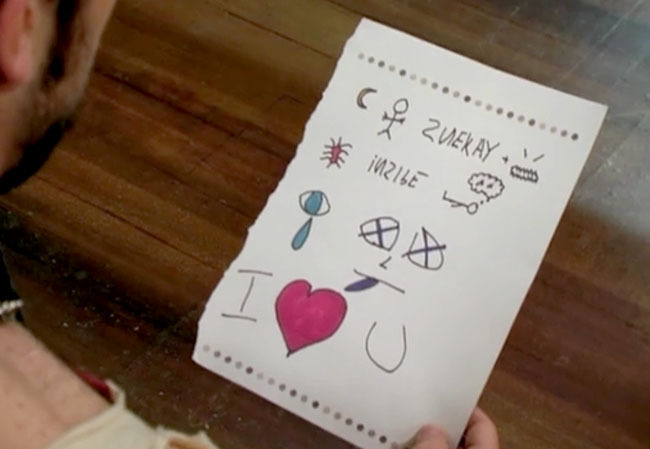 ZNEKAY
INZIBE
I U